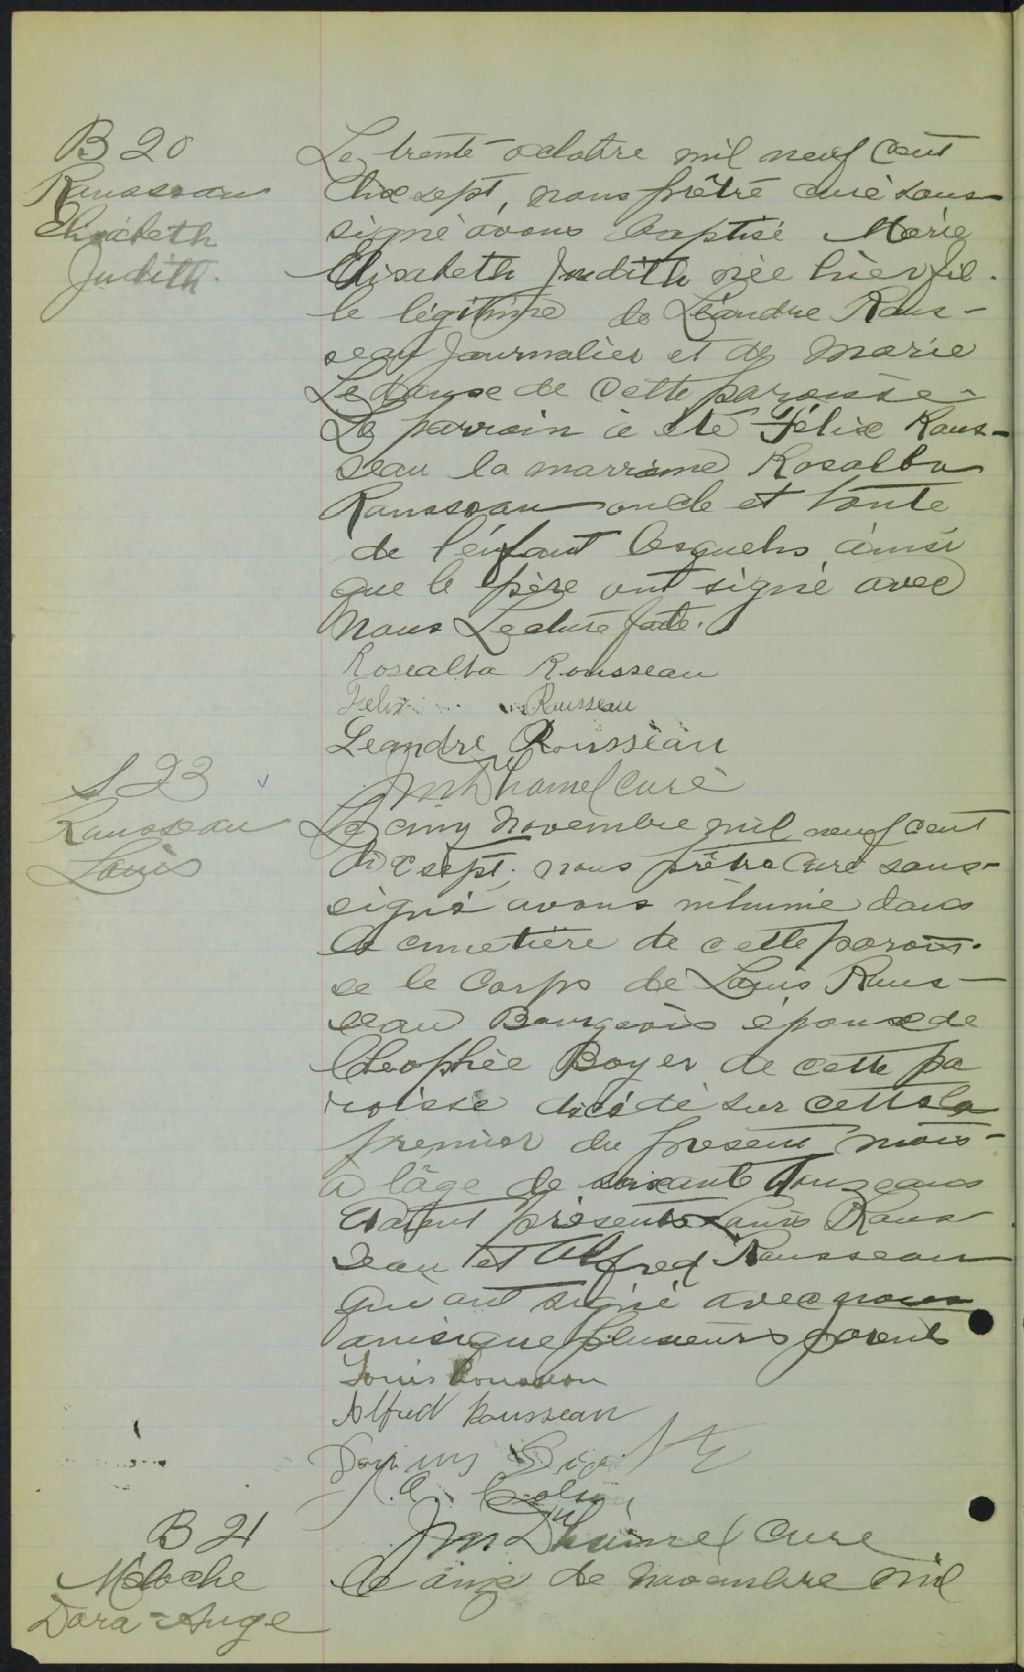 B 20
Rousseau
Elisabeth
Judith.
Le trente octobre mil neuf cent
dix sept, nous prêtre curé sous-
signé avons baptisé Marie
Elisabeth Judith née hier fil-
le légitime de Léandre Rous-
seau journalier et de Marie
de cette paroisse.
Le parrain a été Félix Rous-
seau la marraine Rosalba
Rousseau oncle et tante
de l'enfant lesquels ainsi
que le père ont signé avec
nous Lecture faite.
Rosealba Rousseau
Felix Rousseau
Leandre Rousseau
Duhamel curé
S 23
Rousseau
Louis
Le cinq novembre mil neuf cent
dix sept, nous prêtre curé sous-
signé avons inhumé dans
le cimetière de cette parois-
se le corps de Louis Rous-
seau Bourgeois époux de
Cléophée Boyer de cette pa
roisse décédé sur cette le
premier du present mois
a lâge de soixante ans
Etaient présents Louis Rous
seau et Alfred Rousseau
qui ont signé avec nous
ainsi que plusieurs parents
Louis Rousseau
Alfred Rousseau
Duhamel curé
B 21
Meloche
Dora-Ange
le onze de novembre mil